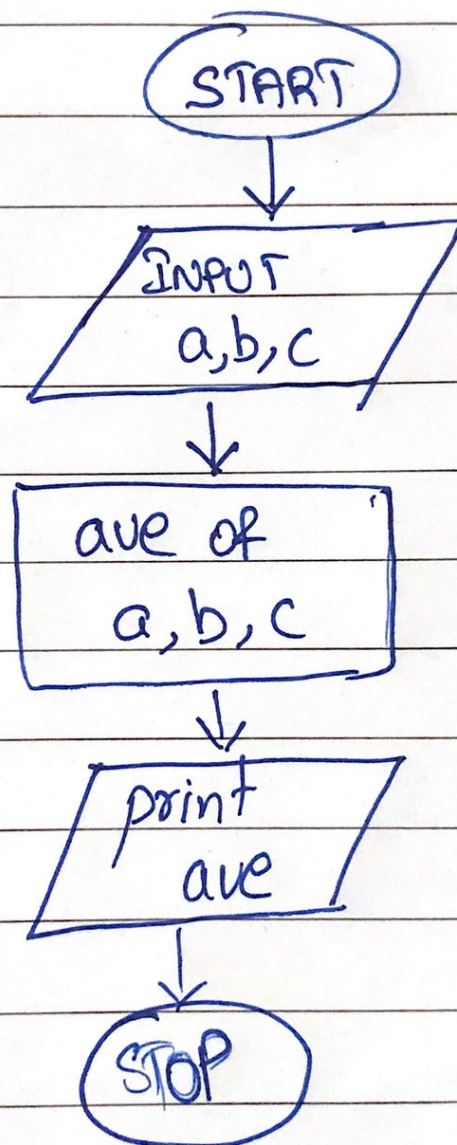 START
INPUT
a,b,c
ave of
a,b,c
print
ave
STOP